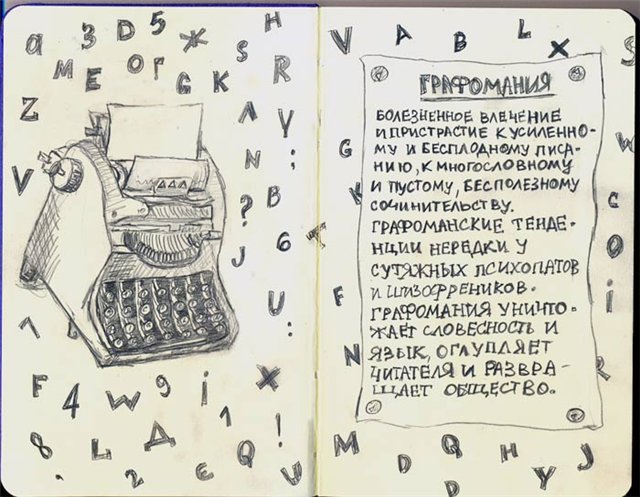 a 3 D 5 * H
M E O Г G K S R
Z Λ V
N ;
V ? B
J 6
U :
1
F 4 W 9 i X
1 !
8. L Д Q
2 Є U
V A B L X S
G W
K C
O
F i
N R
M D Q H J
D Y
ГРАФОМАНИЯ
БОЛЕЗНЕННОЕ ВЛЕЧЕНИЕ
И ПРИСТРАСТИЕ К УСИЛЕННО-
МУ И БЕСПЛОДНОМУ ПИСА-
НИЮ, К МНОГОСЛОВНОМУ
И ПУСТОМУ, БЕСПОЛЕЗНОМУ
СОЧИНИТЕЛЬСТВУ.
ГРАФОМАНСКИЕ ТЕНДЕ-
НЦИИ НЕРЕДКИ У
СУТЯЖНЫХ ПСИХОПАТОВ
И ШИЗОФРЕНИКОВ.
ГРАФОМАНИЯ УНИЧТО-
ЖАЕТ СЛОВЕСНОСТЬ И
ЯЗЫК, ОГЛУПЛЯЕТ
ЧИТАТЕЛЯ И РАЗВРА-
ЩАЕТ ОБЩЕСТВО.